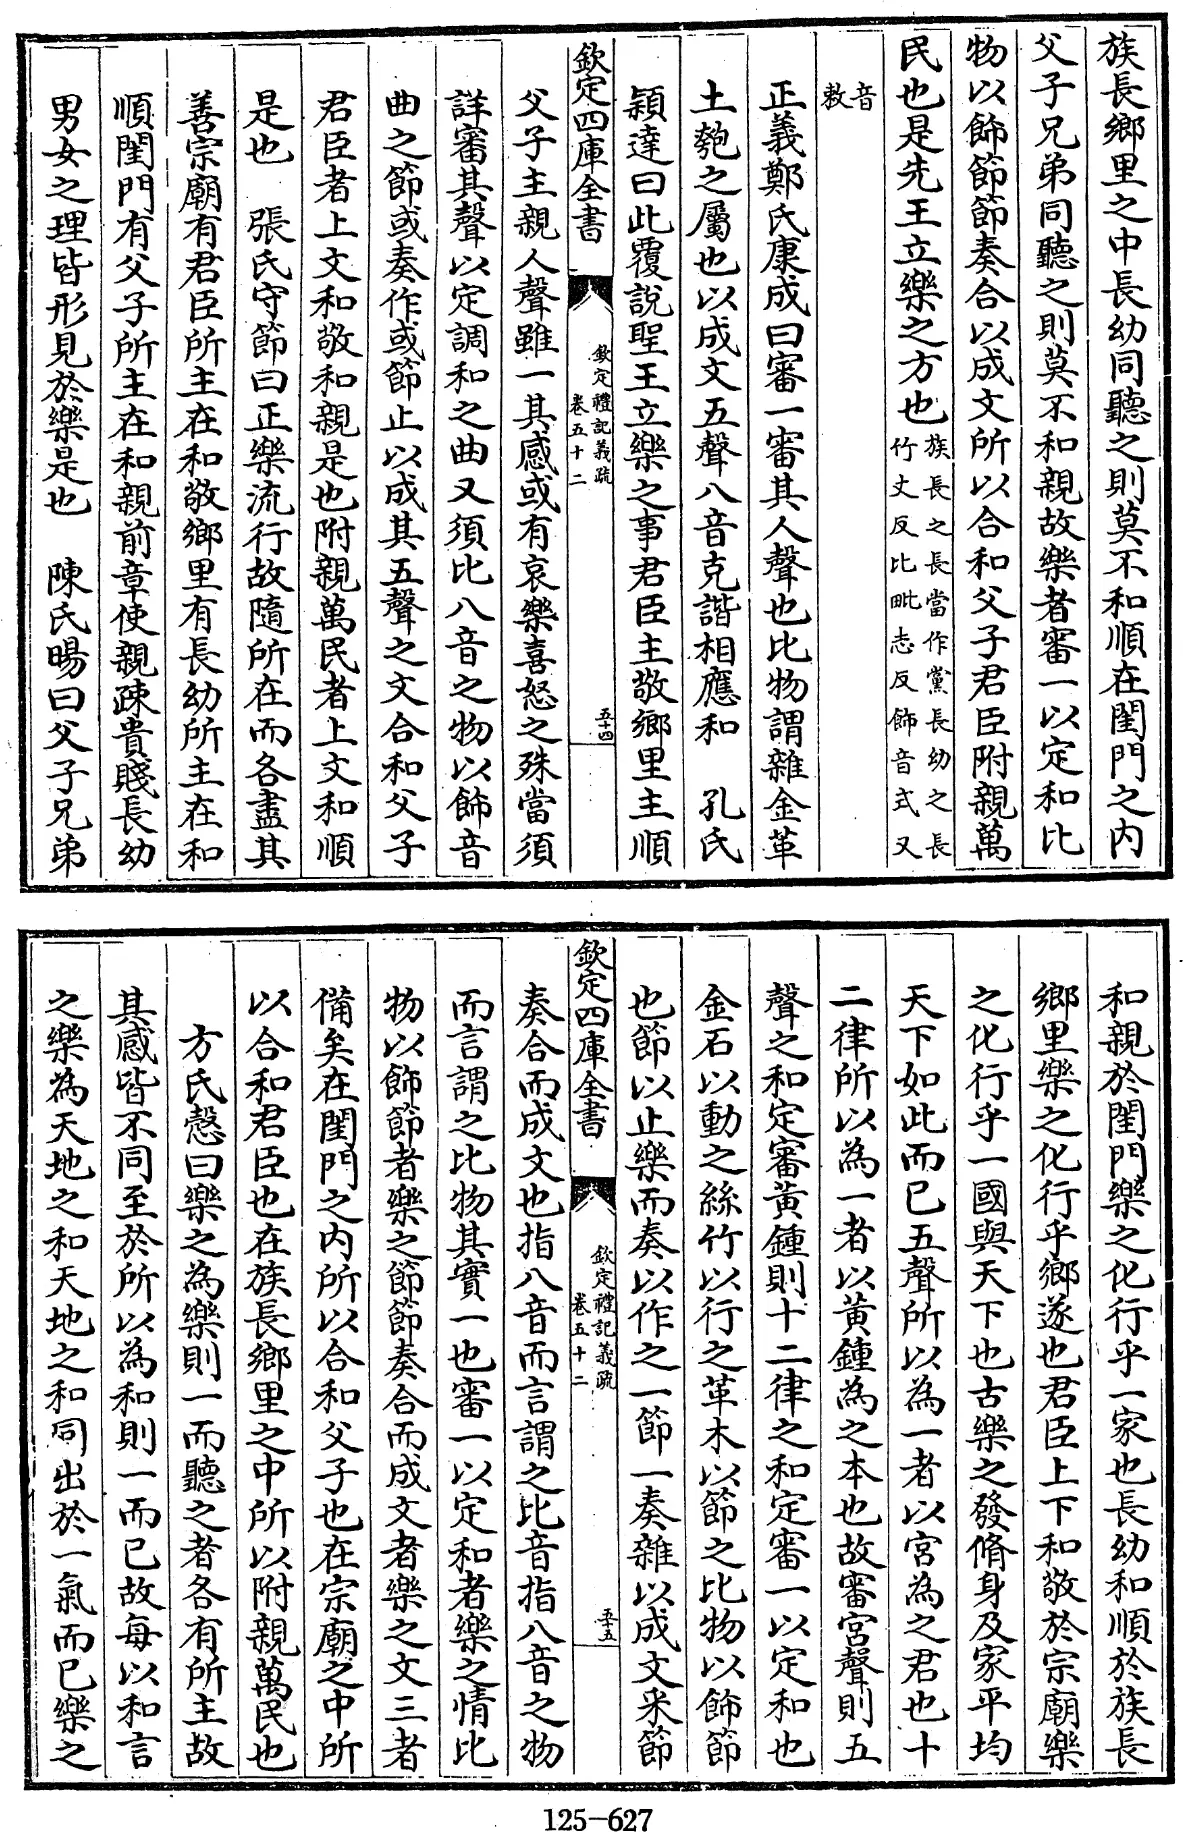 族長鄉里之中長幼同聽之則莫不和順在閨門之内
父子兄弟同聽之則莫不和親故樂者審一以定和比
物以飾節節奏合以成文所以合和父子君臣附親萬
民也是先王立樂之方也族長之長當作黨長幼之長
竹丈反比毗志反飾音式又
音
敕
正義鄭氏康成曰審一審其人聲也比物謂雜金革
土匏之屬也以成文五聲八音克諧相應和　孔氏
穎達曰此覆說聖王立樂之事君臣主敬鄉里主順
欽定四庫全書
欽定禮記義疏
卷五十二
五十四
父子主親人聲雖一其感或有哀樂喜怒之殊當須
詳審其聲以定調和之曲又須比八音之物以飾音
曲之節或奏作或節止以成其五聲之文合和父子
君臣者上文和敬和親是也附親萬民者上文和順
是也　張氏守節曰正樂流行故隨所在而各盡其
善宗廟有君臣所主在和敬鄉里有長幼所主在和
順閨門有父子所主在和親前章使親疎貴賤長幼
男女之理皆形見於樂是也　陳氏暘曰父子兄弟
和親於閨門樂之化行乎一家也長幼和順於族長
鄉里樂之化行乎鄉遂也君臣上下和敬於宗廟樂
之化行乎一國與天下也古樂之發脩身及家平均
天下如此而已五聲所以為一者以宮為之君也十
二律所以為一者以黃鍾為之本也故審宮聲則五
聲之和定審黃鍾則十二律之和定審一以定和也
金石以動之絲竹以行之革木以節之比物以飾節
也節以止樂而奏以作之一節一奏雜以成文采節
欽定四庫全書
欽定禮記義疏
卷五十二
五十五
奏合而成文也指八音而言謂之比音指八音之物
而言謂之比物其實一也審一以定和者樂之情比
物以飾節者樂之節節奏合而成文者樂之文三者
備矣在閨門之内所以合和父子也在宗廟之中所
以合和君臣也在族長鄉里之中所以附親萬民也
方氏慤曰樂之為樂則一而聽之者各有所主故
其感皆不同至於所以為和則一而已故每以和言
之樂為天地之和天地之和同出於一氣而已樂之
125-627